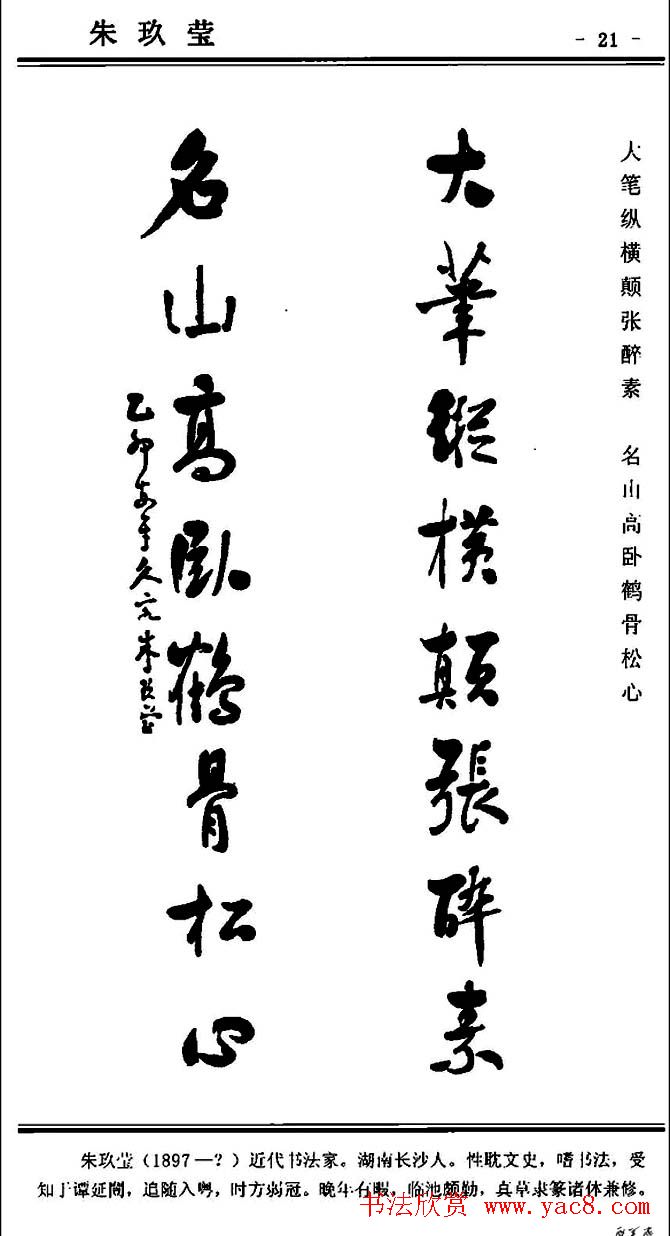 朱玖莹
- 21 -
大笔纵横颠张醉素 名山高卧鹤骨松心
大筆縱橫顛張醉素
名山高臥鶴骨松心
乙卯 久 朱玖瑩
朱玖莹(1897—?)近代书法家。湖南长沙人。性耽文史,嗜书法,受
知于谭延闿,追随入粤,时方弱冠。晚年有暇,临池颇勤,真草隶篆诸体兼修。
书法欣赏 www.yac8.com